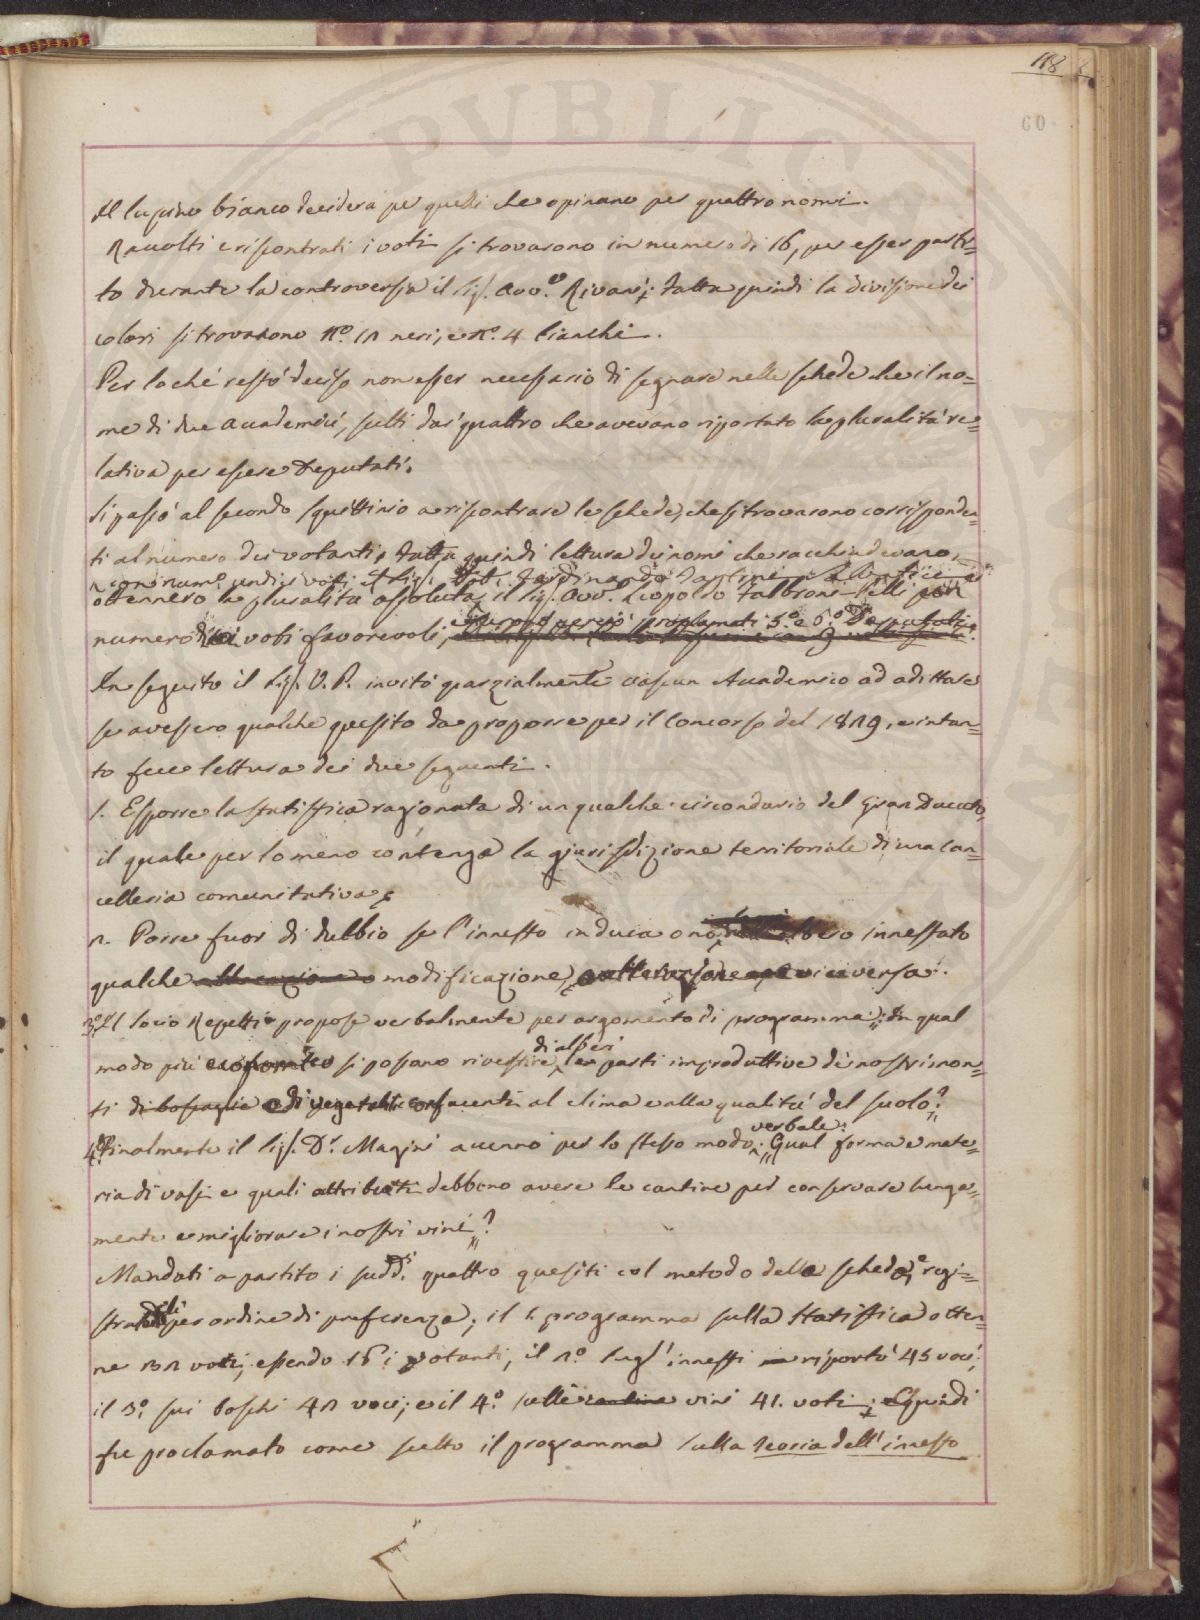 118
60
Il lupino bianco deciderà per quelli che opinano per quattro nomi.
Raccolti e riscontrati i voti si trovarono in numero di 16, per esser parti=
to durante la controversia il Sig. Avv.o Rivani; Fatta quindi la divisione dei
colori si trovarono N.o 12 neri, e N.o 4 bianchi.
Per lo ché restò deciso non esser necessario di segnare nelle schede che il no=
me di due Accademici, scelti dai quattro che avevano riportato la pluralità re=
lativa per essere Deputati.
Si passò al secondo squittinio a riscontrare le schede, che si trovarono corrisponden=
ti al numero dei votanti, fatta quindi lettura dei nomi che racchiudevano,
con num.o undici voti il Sig. Dott. Ferdinando Tartini Salvatici ed
ottennero la pluralità assoluta il Sig. Avv. Leopoldo Fabbroni Pelli con
numero voti favorevoli, e furono perciò proclamati 5.o e 6.o Deputati.
In seguito il Sig. V. P. invitò parzialmente ciascun Accademico ad adittare
se avessero qualche quesito da proporre per il Concorso del 1829, e intan=
to fece lettura dei due seguenti.
1. Esporre la statistica ragionata di un qualche circondario del Gran Ducato,
il quale per lo meno contenga la giurisdizione territoriale di una Can=
celleria comunitativa;
2. Porre fuor di dubbio se l'innesto induca o no albero innestato
qualche modificazione, e viceversa.
3.o Il Socio Repetti propose verbalmente per argomento di programma: "In qual
modo più economico si possano rivestire di alberi le parti improduttive dei nostri mon=
ti di boscaglie e di vegetabili confacenti al clima e alla qualità del suolo?"
4.o Finalmente il Sig. D.r Magini accennò per lo stesso modo verbale: "Qual forma e mate=
ria di vasi e quali attributi debbono avere le cantine per conservare lunga=
mente e migliorare i nostri vini"?
Mandati a partito i sudd.i quattro quesiti col metodo delle schede, e regi=
strati per ordine di preferenza; il 1. programma sulla Statistica otten=
ne 32 voti, essendo 16 i votanti, il 2.o sugl'innesti riportò 45 voci,
il 3.o sui boschi 42 voci; e il 4.o sulle cantine vini 41. voti; Quindi
fu proclamato come scelto il programma sulla teoria dell'innesto